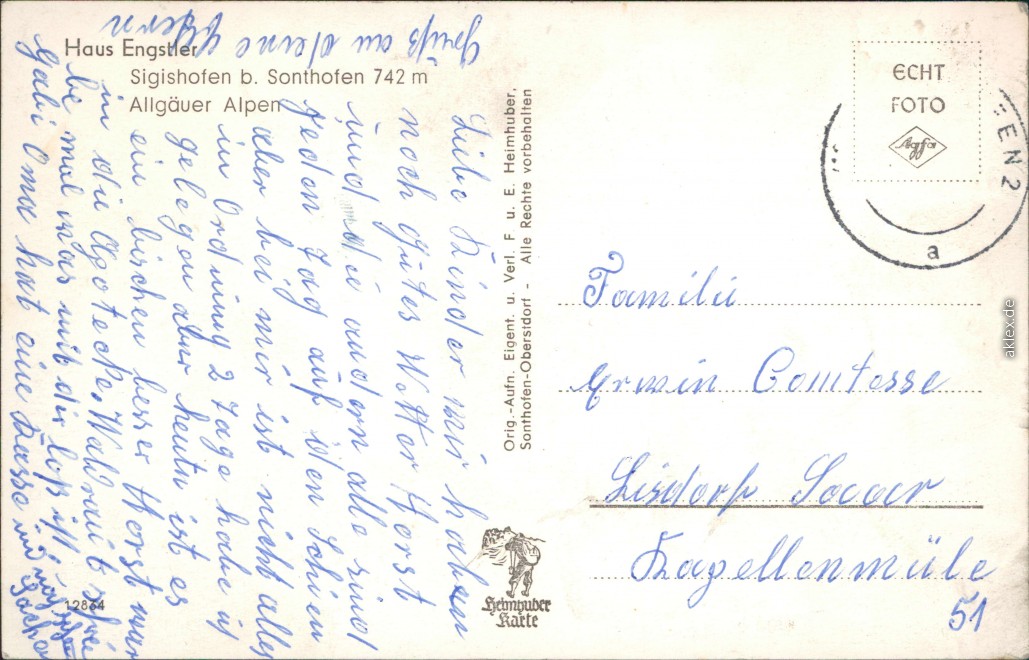 Haus Engstler
Sigishofen b. Sonthofen 742 m
Allgäuer Alpen
Liebe Kinder wir haben
noch gutes Wetter Horst
und die andern alle sind
jeden Tag auf den Schien
aber bei mir ist nicht alles
in Ordnung 2 Tage habe ich
gelegen aber heute ist es
ein bischen besser Horst war
in die Apoteke. Waldraut
be mal was mit dir loß ist
Gabi Oma hat eine
Gruß an deine Eltern
Orig.-Aufn. Eigent. u. Verl. F. u. E. Heimhuber,
Sonthofen-Oberstdorf - Alle Rechte vorbehalten
Heimhuber
Karte
12864
ECHT
FOTO
Agfa
EN 2
a
Familie
Erwin Comtesse
Lisdorf Saaar
Kapellenmüle
51
aklex.de